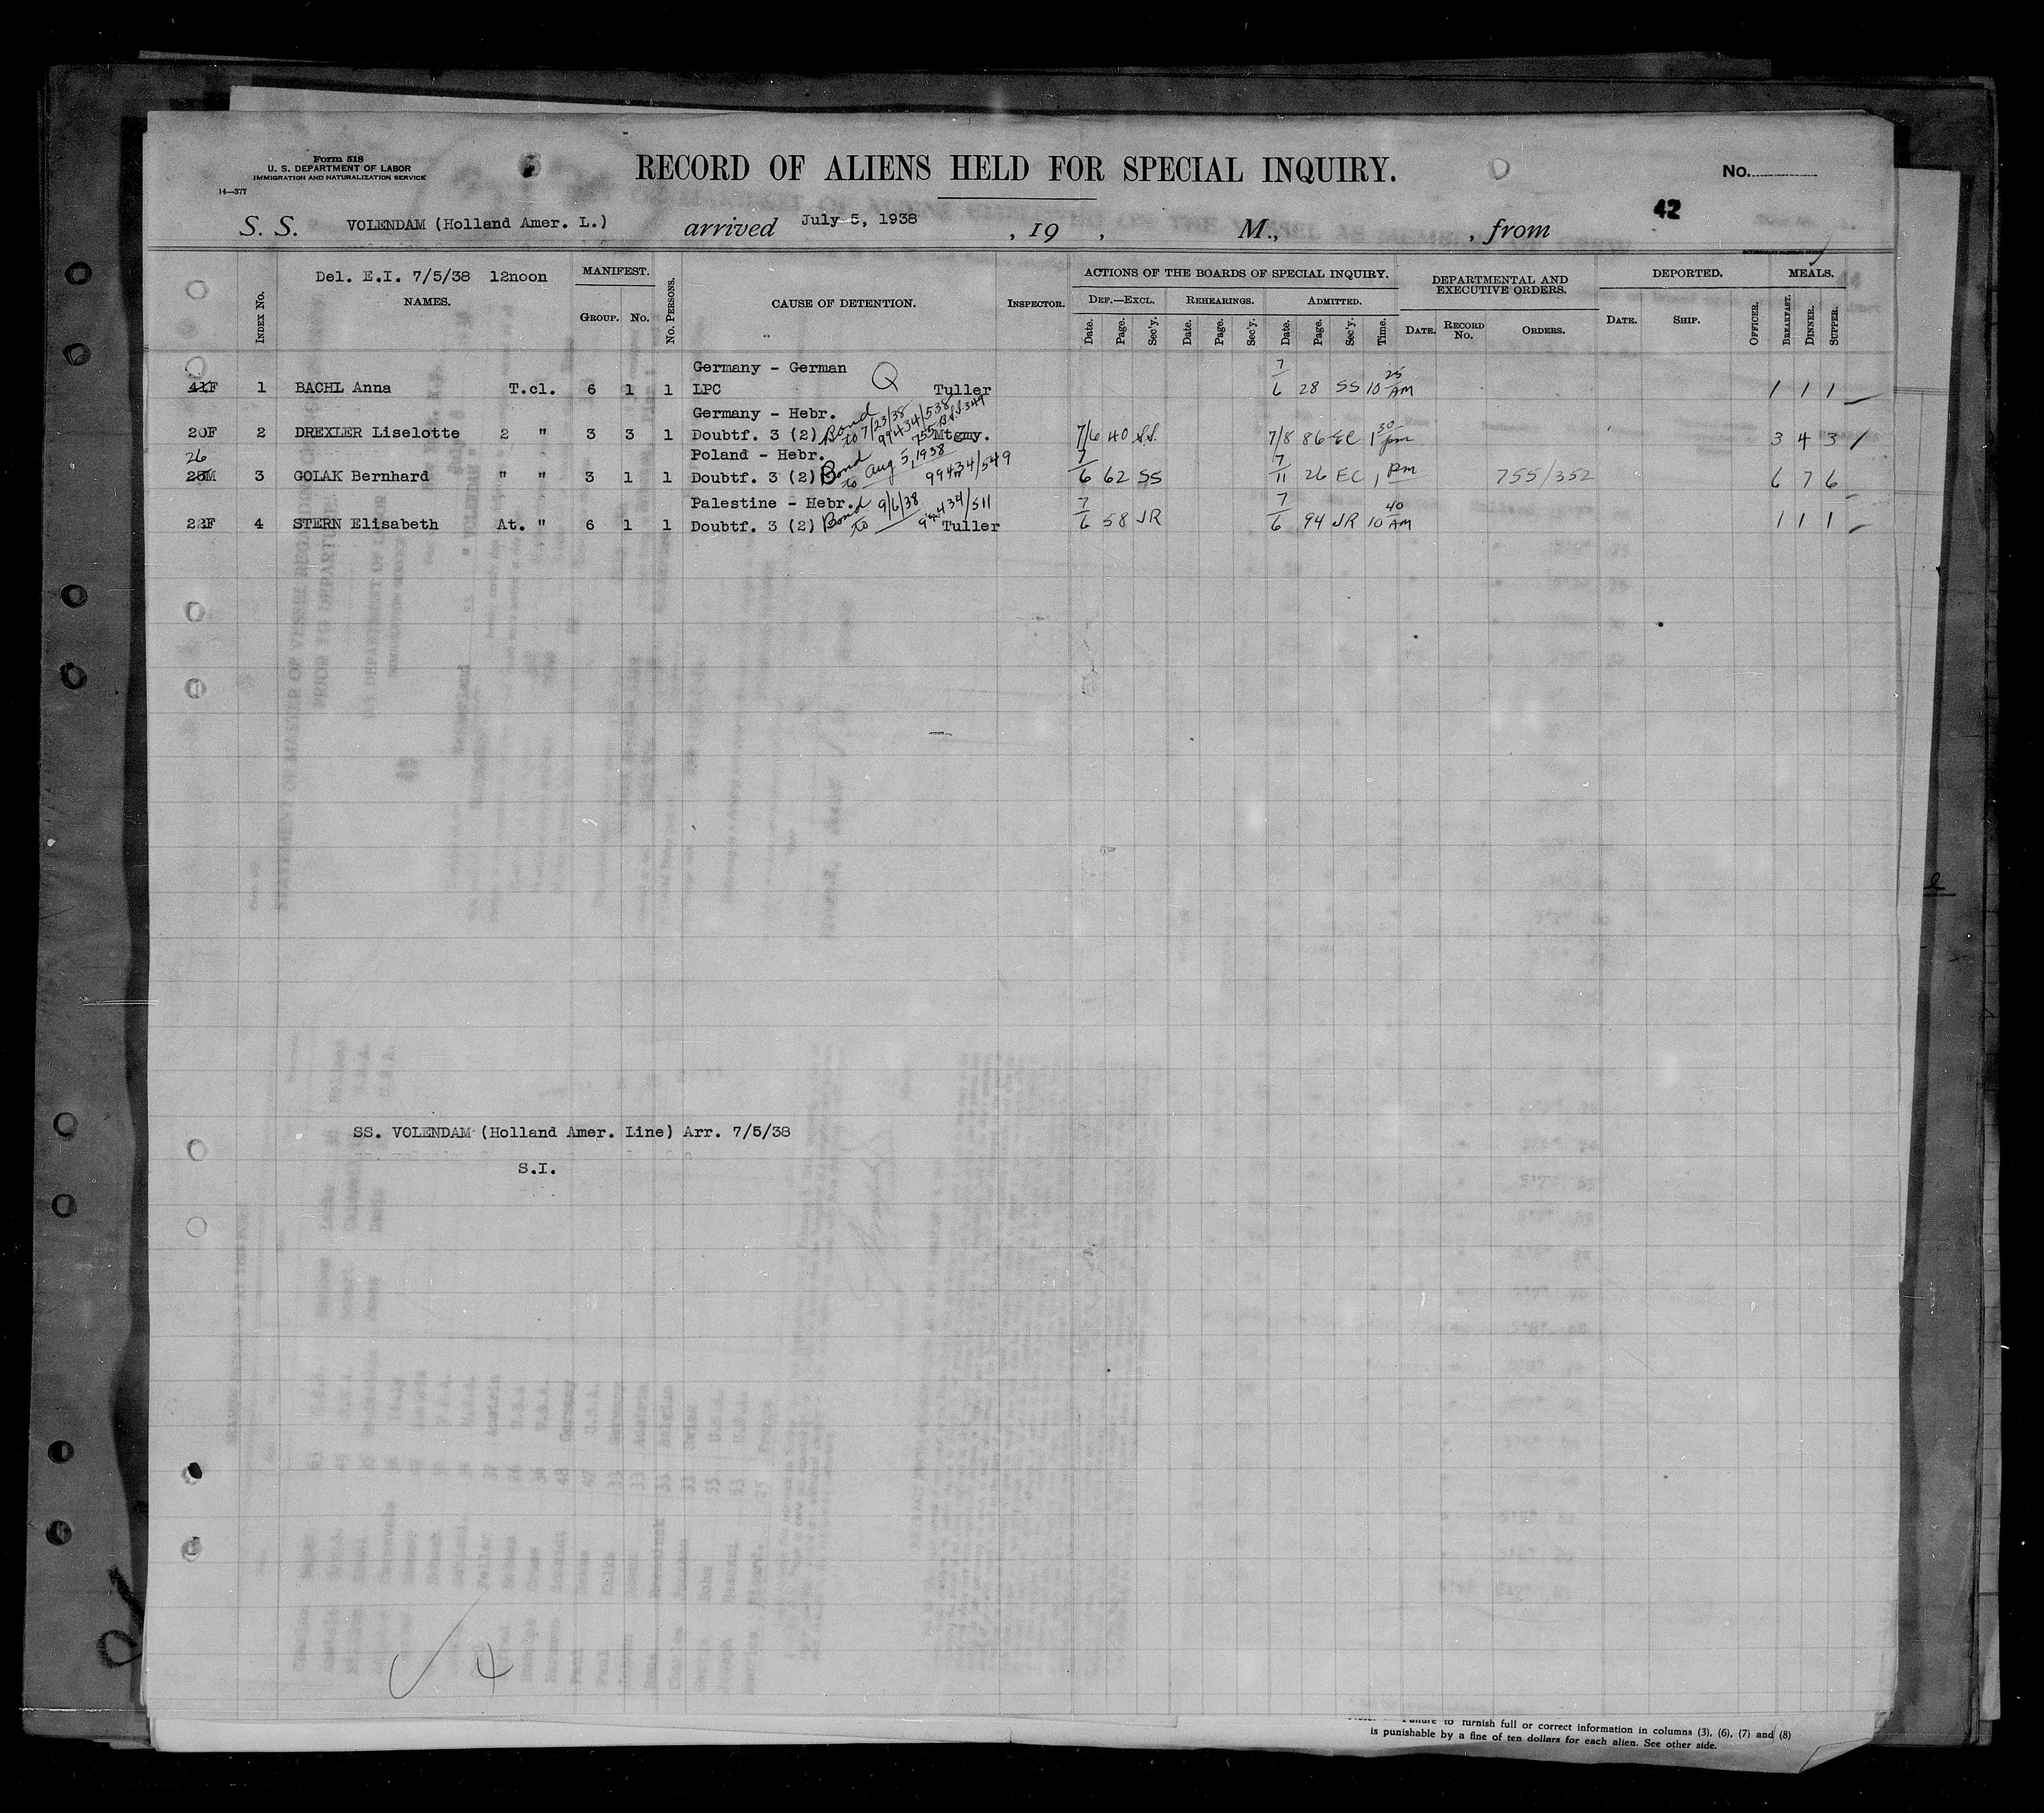 Form 518
U. S. DEPARTMENT OF LABOR
IMMIGRATION AND NATURALIZATION SERVICE
14—377
RECORD OF ALIENS HELD FOR SPECIAL INQUIRY.
No.
42
S. S. VOLENDAM (Holland Amer. L.) arrived July 5, 1938 , 19 , M., , from
Del. E.I. 7/5/38 12noon
INDEX NO. NAMES. MANIFEST. GROUP. NO. NO. PERSONS. CAUSE OF DETENTION. INSPECTOR. ACTIONS OF THE BOARDS OF SPECIAL INQUIRY. DEPARTMENTAL AND EXECUTIVE ORDERS. DEPORTED. MEALS.
DEF.—EXCL. REHEARINGS. ADMITTED.
Date. Page. Sec'y. Date. Page. Sec'y. Date. Page. Sec'y. Time. DATE. RECORD NO. ORDERS. DATE. SHIP. OFFICER. BREAKFAST. DINNER. SUPPER.
Germany - German
41F 1 BACHL Anna T.cl. 6 1 1 LPC Q Tuller 7/6 28 SS 10 25 AM 1 1 1
Germany - Hebr.
20F 2 DREXLER Liselotte 2 " 3 3 1 Doubtf. 3 (2) Bond to 7/23/38 99434/538 Mtgmy. 7/6 40 S.S. 7/8 86 EC 1 30 pm 3 4 3
Poland - Hebr.
26
25M 3 GOLAK Bernhard " " 3 1 1 Doubtf. 3 (2) Bond to Aug 5, 1938 99434/549 7/6 62 SS 7/11 26 EC 1 pm 755/352 6 7 6
Palestine - Hebr.
22F 4 STERN Elisabeth At. " 6 1 1 Doubtf. 3 (2) Bond to 9/6/38 99434/511 Tuller 7/6 58 JR 7/6 94 JR 10 40 AM 1 1 1
SS. VOLENDAM (Holland Amer. Line) Arr. 7/5/38
S.I.
4
Failure to furnish full or correct information in columns (3), (6), (7) and (8)
is punishable by a fine of ten dollars for each alien. See other side.